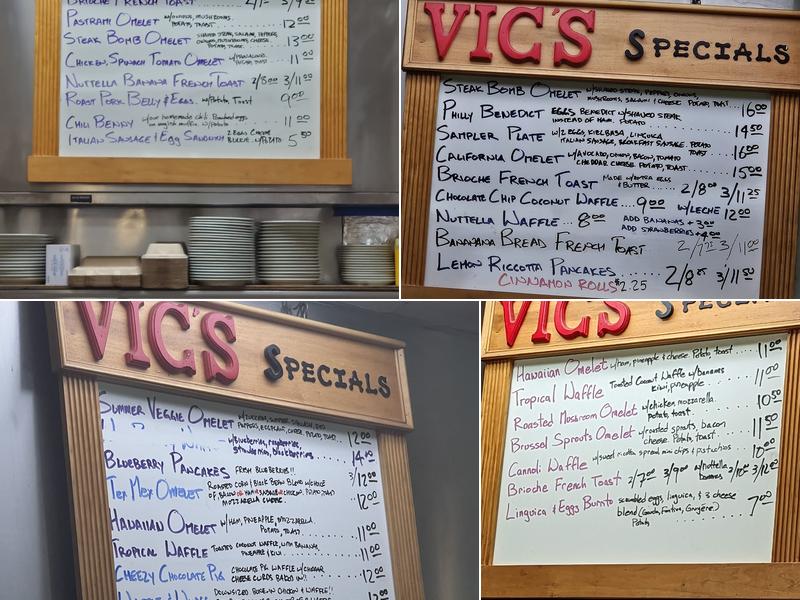 Brioche French Toast 2/7 3/9
Pastrami Omelet w/onions, mushrooms, Potato, Toast 12.00
Steak Bomb Omelet shaved steak, salami, peppers, onions, mushrooms, cheese Potato, Toast 13.00
Chicken, Spinach Tomato Omelet Potato, Toast 11.00
Nuttella Banana French Toast 2/8.00 3/11.00
Roast Pork Belly & Eggs w/Potato, Toast 9.00
Chili Benny w/our homemade chili Poached eggs on english muffin w/Potato 11.00
Italian Sausage & Egg Sandwich 2 Eggs Cheese w/Potato 5.50
VIC'S SPECIALS
Steak Bomb Omelet w/shaved steak, peppers, onions, mushrooms, salami & cheese Potato, Toast 16.00
Philly Benedict eggs benedict w/shaved steak instead of ham, potato 14.50
Sampler Plate w/2 eggs, kielbasa, linguica, italian sausage, breakfast sausage, potato toast 16.00
California Omelet w/avocado, onion, bacon, tomato cheddar cheese, potato, toast 15.00
Brioche French Toast made w/extra eggs & butter 2/8.00 3/11.25
Chocolate Chip Coconut Waffle 9.00 w/leche 12.00
Nuttella Waffle 8.00 add bananas + 3.00
add strawberries + 4.00
Bananana Bread French Toast 2/7.75 3/11.00
Lemon Riccotta Pancakes 2/8 3/11.50
Cinnamon Rolls $2.25
VIC'S SPECIALS
Summer Veggie Omelet w/zucchini, summer squash, red peppers, eggplant, cheese, potato, toast 12.00
w/blueberries, raspberries, strawberries, blackberries 14.00
Blueberry Pancakes fresh blueberries!! 3/12.00
Tex Mex Omelet roasted corn & black bean blend w/choice of bacon or ham or sausage or chicken, potato toast mozzarella cheese 12.00
Hawaiian Omelet w/ham, pineapple, & mozzarella Potato, Toast 11.00
Tropical Waffle toasted coconut waffle, with bananas, pineapple & kiwi 11.00
Cheezy Chocolate Pig chocolate pig waffle w/cheddar cheese curds baked in!! 12.00
Downsized bone-in chicken & waffle!! 12
VIC'S SPECIALS
Hawaiian Omelet w/ham, pineapple & cheese. Potato, toast 11.00
Tropical Waffle Toasted Coconut Waffle w/bananas kiwi, pineapple 11.00
Roasted Mossroom Omelet w/chicken, mozzarella potato, toast 10.50
Brussel Sprouts Omelet w/roasted sprouts, bacon cheese. Potato, toast 11.50
Cannoli Waffle w/sweet ricotta spread, mini chips & pistachios 10.00
Brioche French Toast 2/7.00 3/9.00 w/nuttella bananas 2/10 3/12.00
Linguica & Eggs Burrito scrambled eggs, linguica, & 3 cheese blend (Gouda, Fontina, Gruyère) Potato 7.00